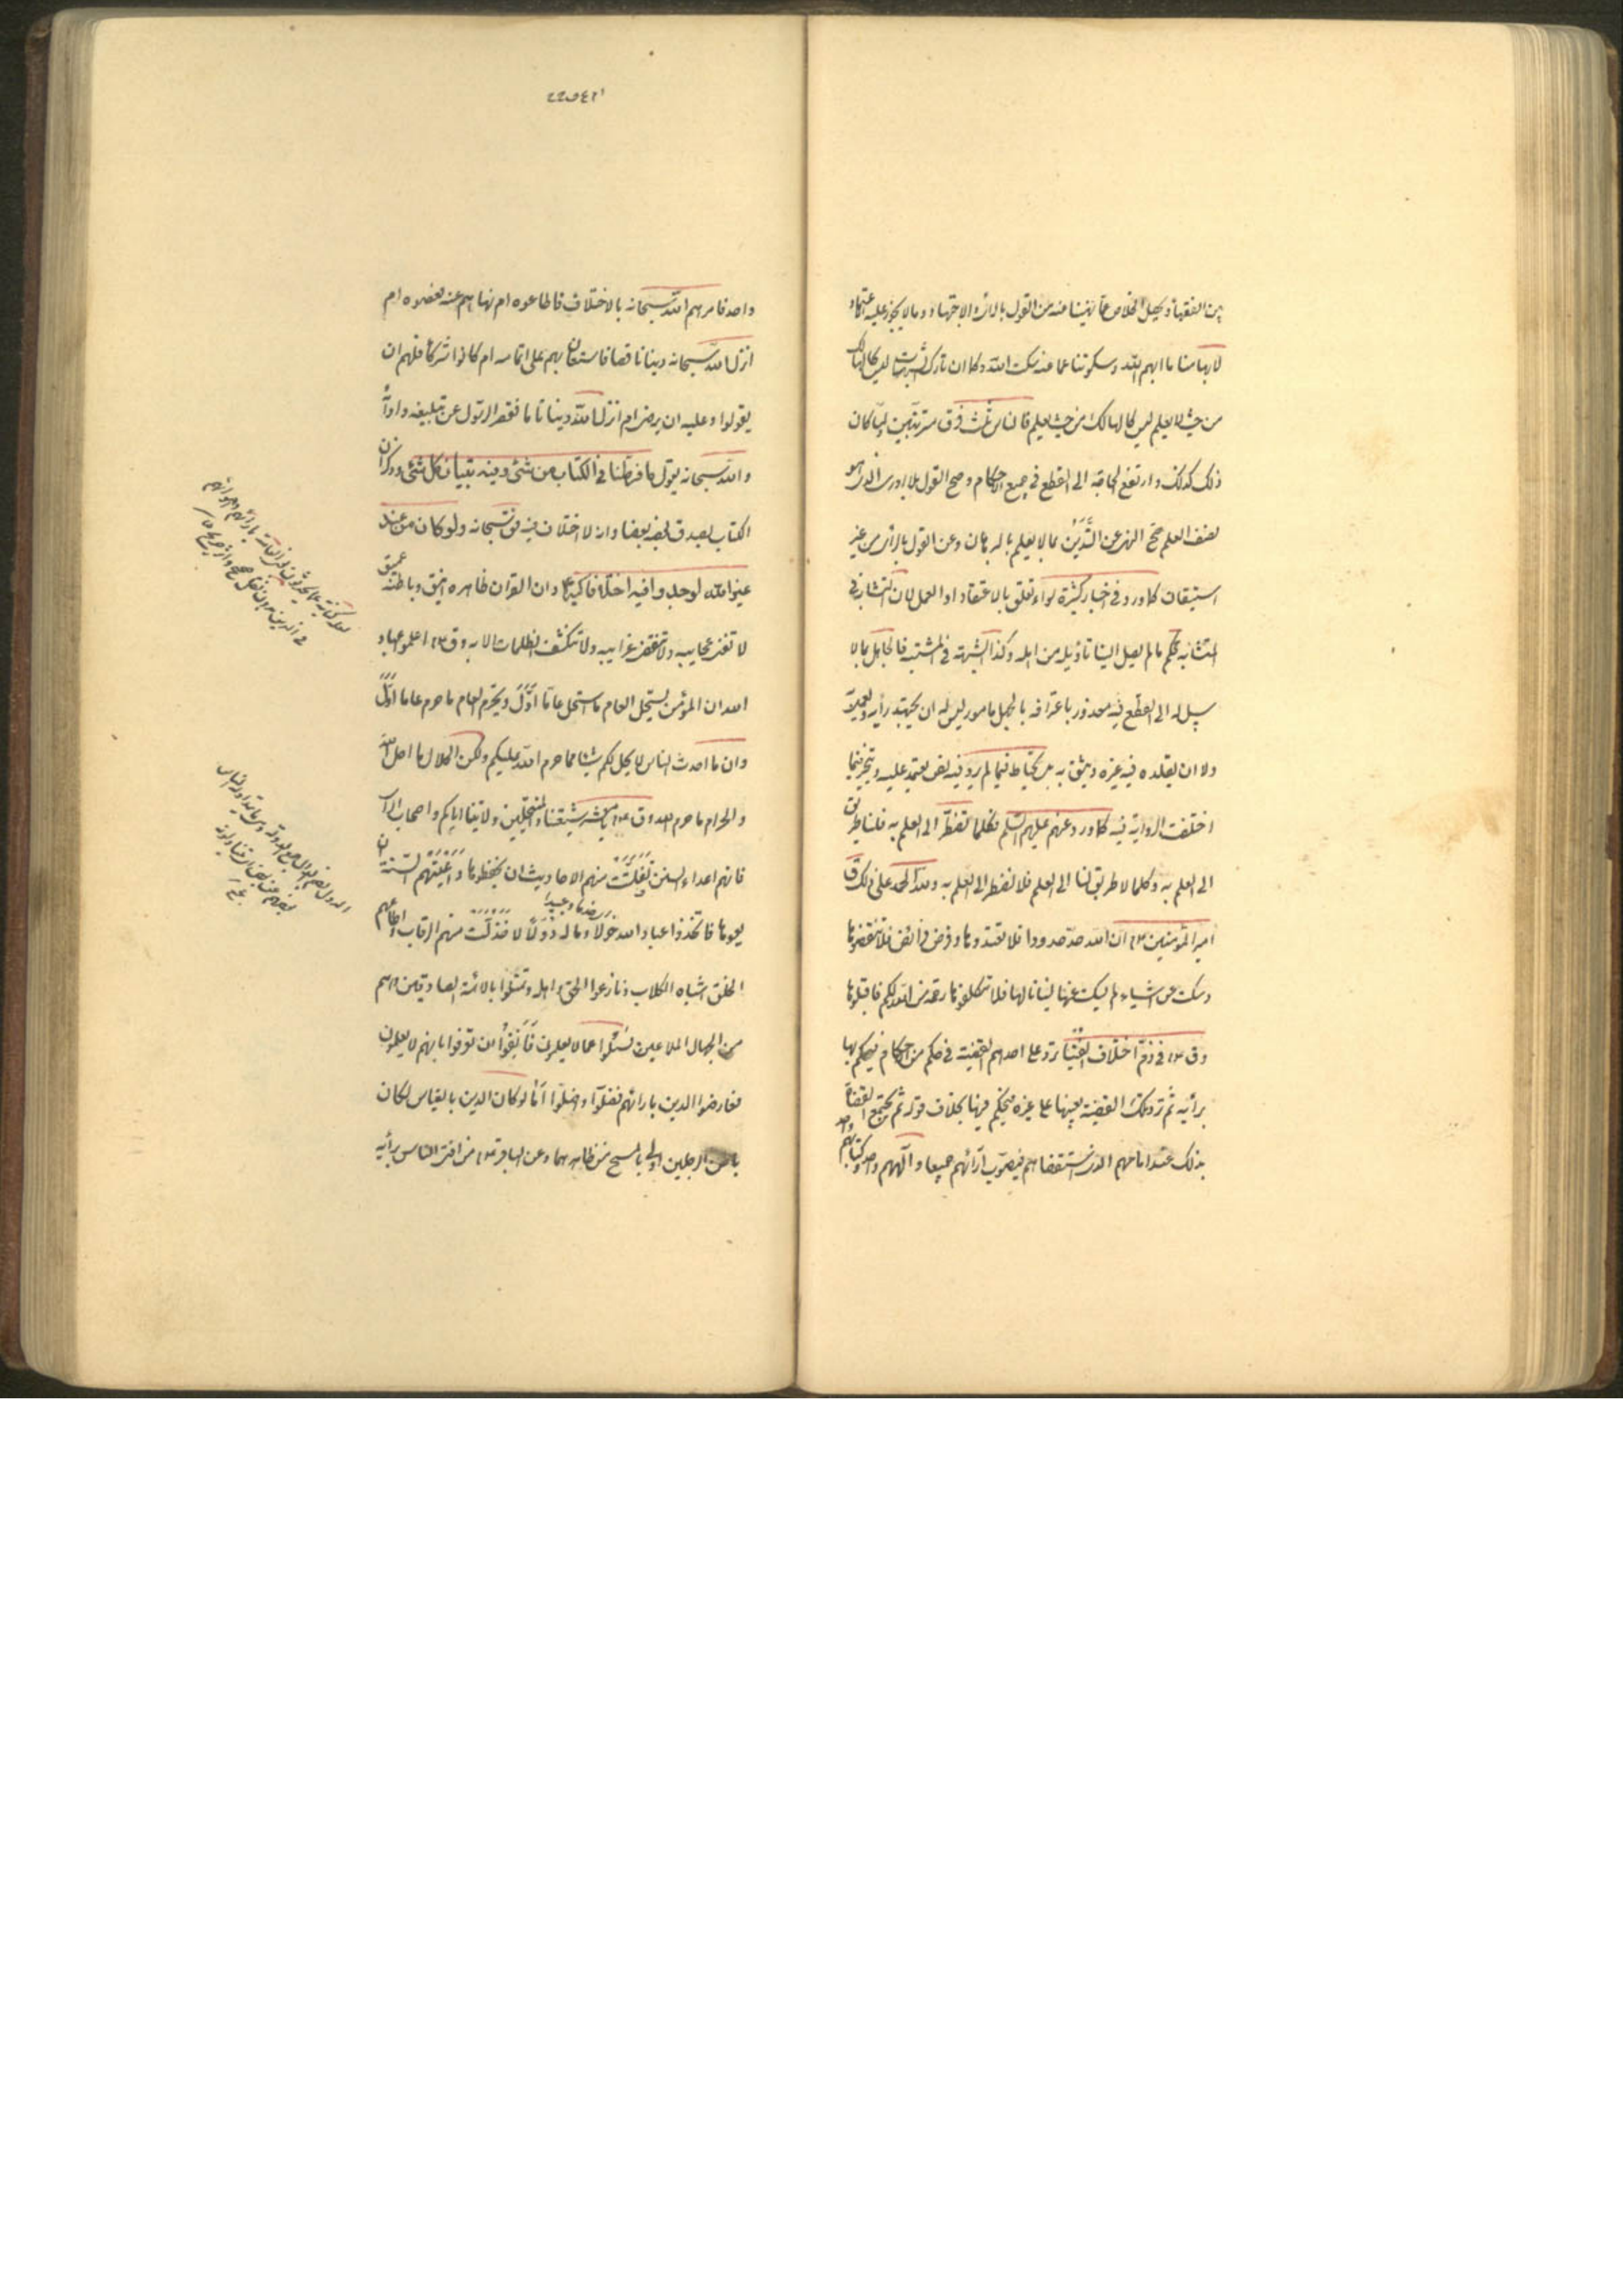 بين الفقهاء ويحصل الخلاص عما نهينا عنه من القول بالرأي والاجتهاد وما لا يجوز عليه الاعتماد
لابهامنا ما ابهم الله وسكوتنا عما عنه سكت الله وكان تارك الشبهات ليس كالهالك
من حيث لا يعلم ليس كالهالك من حيث يعلم فالناس ثلث فرق ولما كان
ذلك كذلك وارتفع الحاجة الى القطع في جميع الاحكام وصح القول بلا ادري الذي هو
نصف العلم صح النهي عن التدين بما لا يعلم بالبرهان وعن القول بالرأي من غير
استيقان كما ورد في اخبار كثيرة سواء تعلق بالاعتقاد او العمل لان المتشابه في
المتشابه محكم ما لم يصل الينا تاويله من اهله وكذا الشبهة في المشتبه فالجاهل بما لا
سبيل له الى القطع فيه معذور باعترافه بالجهل مامور ليس له ان يجتهد رأيه
ولا ان يقلده فيه غيره ويثق به بل يحتاط فيما لم يرد فيه نص يعتمد عليه ويتخير فيما
اختلفت الرواية فيه كما ورد عنهم عليهم السلم فكلما نضطر الى العلم به فلنا طريق
الى العلم به وكلما لا طريق لنا الى العلم فلا نضطر الى العلم به ولله الحمد على ذلك ق
امير المؤمنين ع ان الله حد حدودا فلا تعتدوها وفرض فرائض فلا تنقصوها
وسكت عن اشياء لم يسكت عنها نسيانا لها فلا تتكلفوها رحمة من الله لكم فاقبلوها
وق ع في ذم اختلاف الفتيا ترد على احدهم القضية في حكم من الاحكام فيحكم فيها
برأيه ثم ترد تلك القضية بعينها على غيره فيحكم فيها بخلاف قوله ثم يجتمع القضاة
بذلك عند امامهم الذي استقضاهم فيصوب آرائهم جميعا وآلههم واحد وكتابهم واحد
واحد فامرهم الله سبحانه بالاختلاف فاطاعوه ام نهاهم عنه فعصوه ام
انزل الله سبحانه دينا ناقصا فاستعان بهم على اتمامه ام كانوا شركاء فلهم ان
يقولوا وعليه ان يرضى ام انزل الله دينا تاما فقصر الرسول عن تبليغه وادائه
والله سبحانه يقول ما فرطنا في الكتاب من شئ وفيه تبيان كل شئ وذكر ان
الكتاب يصدق بعضه بعضا وانه لا اختلاف فيه فق سبحانه ولو كان من عند
غير الله لوجدوا فيه اختلافا كثيرا وان القران ظاهره انيق وباطنه عميق
لا تفنى عجايبه ولا تنقضي غرايبه ولا تنكشف الظلمات الا به وق ع اعلموا عباد
الله ان المؤمن يستحل العام ما استحل عاما اول ويحرم العام ما حرم عاما اول
وان ما احدث الناس لا يحل لكم شيئا مما حرم الله عليكم ولكن الحلال ما احل الله
والحرام ما حرم الله وق ع يا معشر شيعتنا والمنتحلين ولايتنا اياكم واصحاب الرأي
فانهم اعداء السنن تفلتت منهم الاحاديث ان يحفظوها واعيتهم السنة ان
يعوها فاتخذوا عباد الله خولا وماله دولا فذلت منهم الرقاب واطاعهم
الخلق اشباه الكلاب ونازعوا الحق اهله وتمثلوا بالائمة الصادقين وهم
من الجهال الملاعين فسئلوا عما لا يعلمون فانفوا ان يعترفوا بانهم لا يعلمون
فعارضوا الدين بارائهم فضلوا واضلوا اما لو كان الدين بالقياس لكان
باطن الرجلين اولى بالمسح من ظاهرهما وعن الباقر ع من افتى الناس برأيه